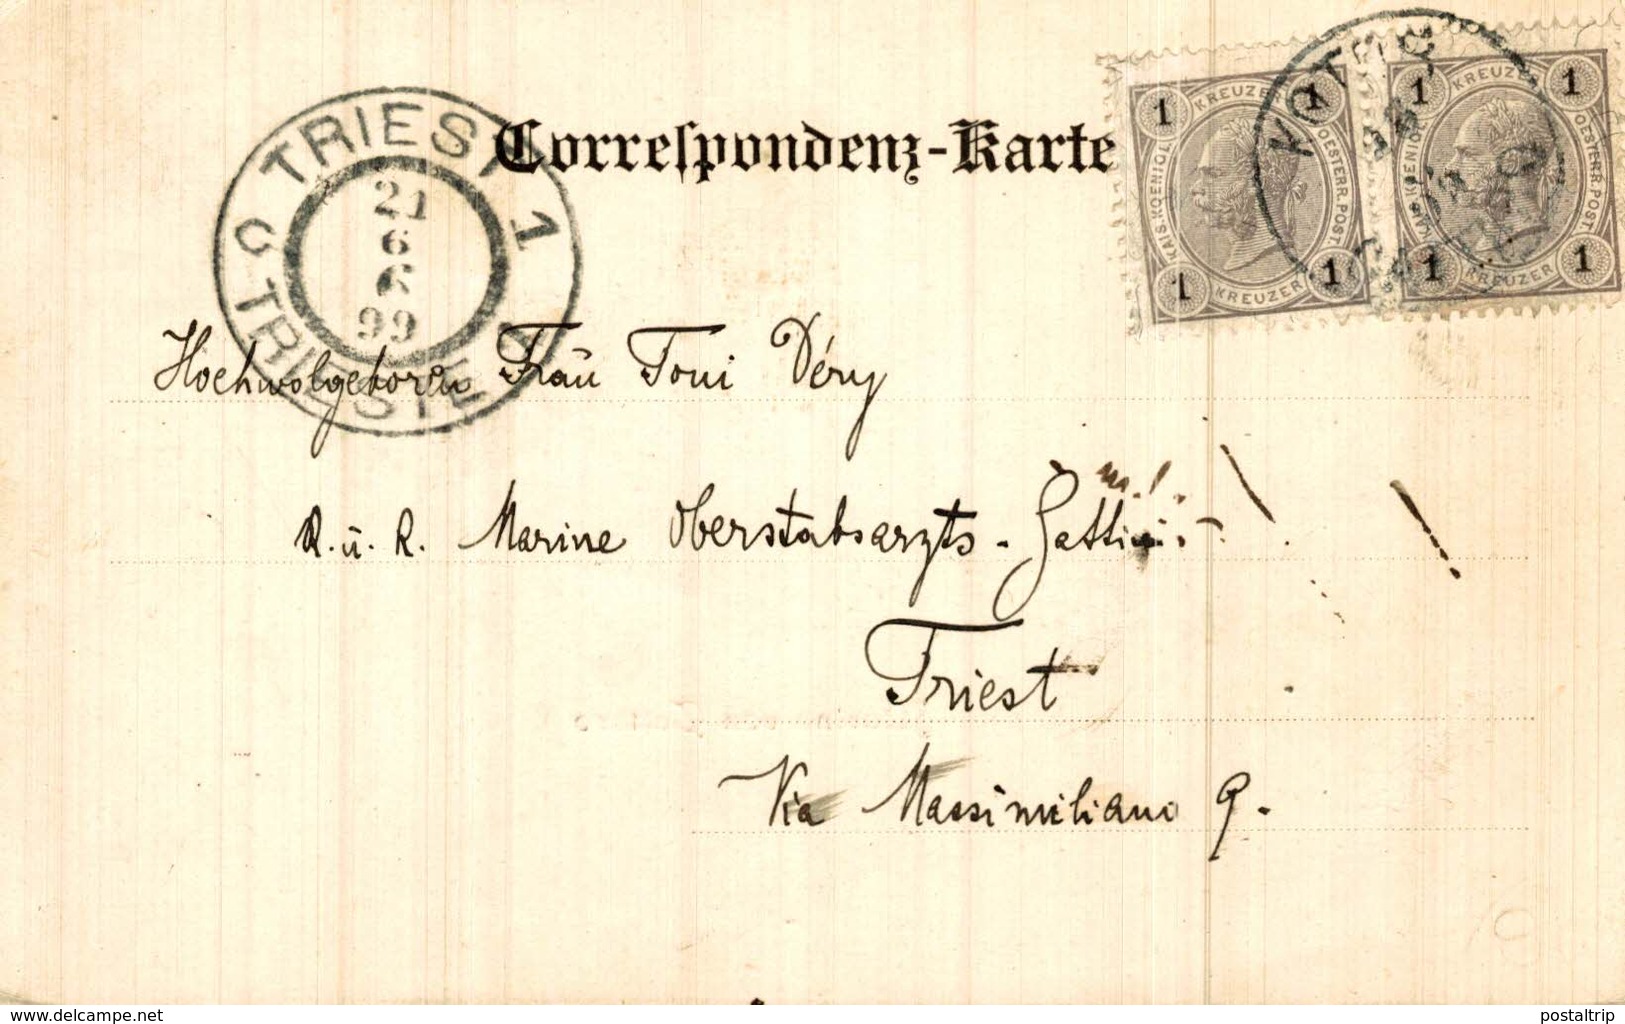 Correspondenz-Karte
TRIEST 1
21
6
6
99
TRIESTE
1 KREUZER 1
KAIS. KOENIGL. OESTERR. POST.
1 KREUZER 1
1 KREUZER 1
KAIS. KOENIGL. OESTERR. POST.
1 KREUZER 1
Hochwolgeboren Frau Toni Déry
K. u. K. Marine Oberstabsarzts-Gattin
Triest
Via Massimiliano 9.
www.delcampe.net
postaltrip